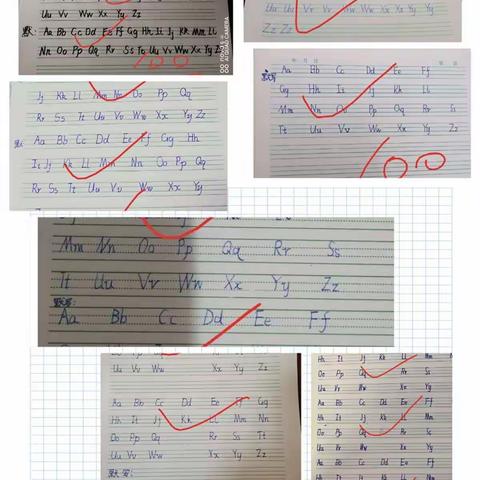 Uu Vv Ww Xx Yy Zz
默: Aa Bb Cc Dd Ee Ff Gg Hh Ii Jj Kk Mm Ll
Nn Oo Pp Qq Rr Ss Tt Uu Vv Ww Xx Yy Zz
100
Zz Zz
默写 Aa Bb Cc Dd Ee Ff
Gg Hh Ii Jj Kk Ll
Mm Nn Oo Pp Qq Rr Ss
Tt Uu Vv Ww Xx Yy Zz
100
Jj Kk Ll Mm Nn Oo Pp Qq
Rr Ss Tt Uu Vv Ww Xx Yy Zz
Aa Bb Cc Dd Ee Ff Gg Hh
Ii Jj Kk Ll Mm Nn Oo Pp Qq
Rr Ss Tt Uu Vv Ww Xx Yy
Mm Nn Oo Pp Qq Rr Ss
Tt Uu Vv Ww Xx Yy Zz
默写:
Aa Bb Cc Dd Ee Ff
Uu Vv Ww Xx Yy Zz
Aa Bb Cc Dd Ee Ff Gg
Hh Ii Jj Kk LL Mm Nn
Oo Pp Qq Rr Ss Tt
Uu Vv Ww Xx Yy Zz
默写:
Hh Ii Jj Kk LL Mm
Oo Pp Qq Rr Ss
Uu Vv Ww Xx Yy
Aa Bb Cc Dd Ee Ff
Hh Ii Jj Kk LL Mm
Oo Pp Qq Rr Ss
Uu Vv Ww Xx Yy
Aa Bb Cc Dd Ee Ff
Hh Ii Jj Kk LL Mm